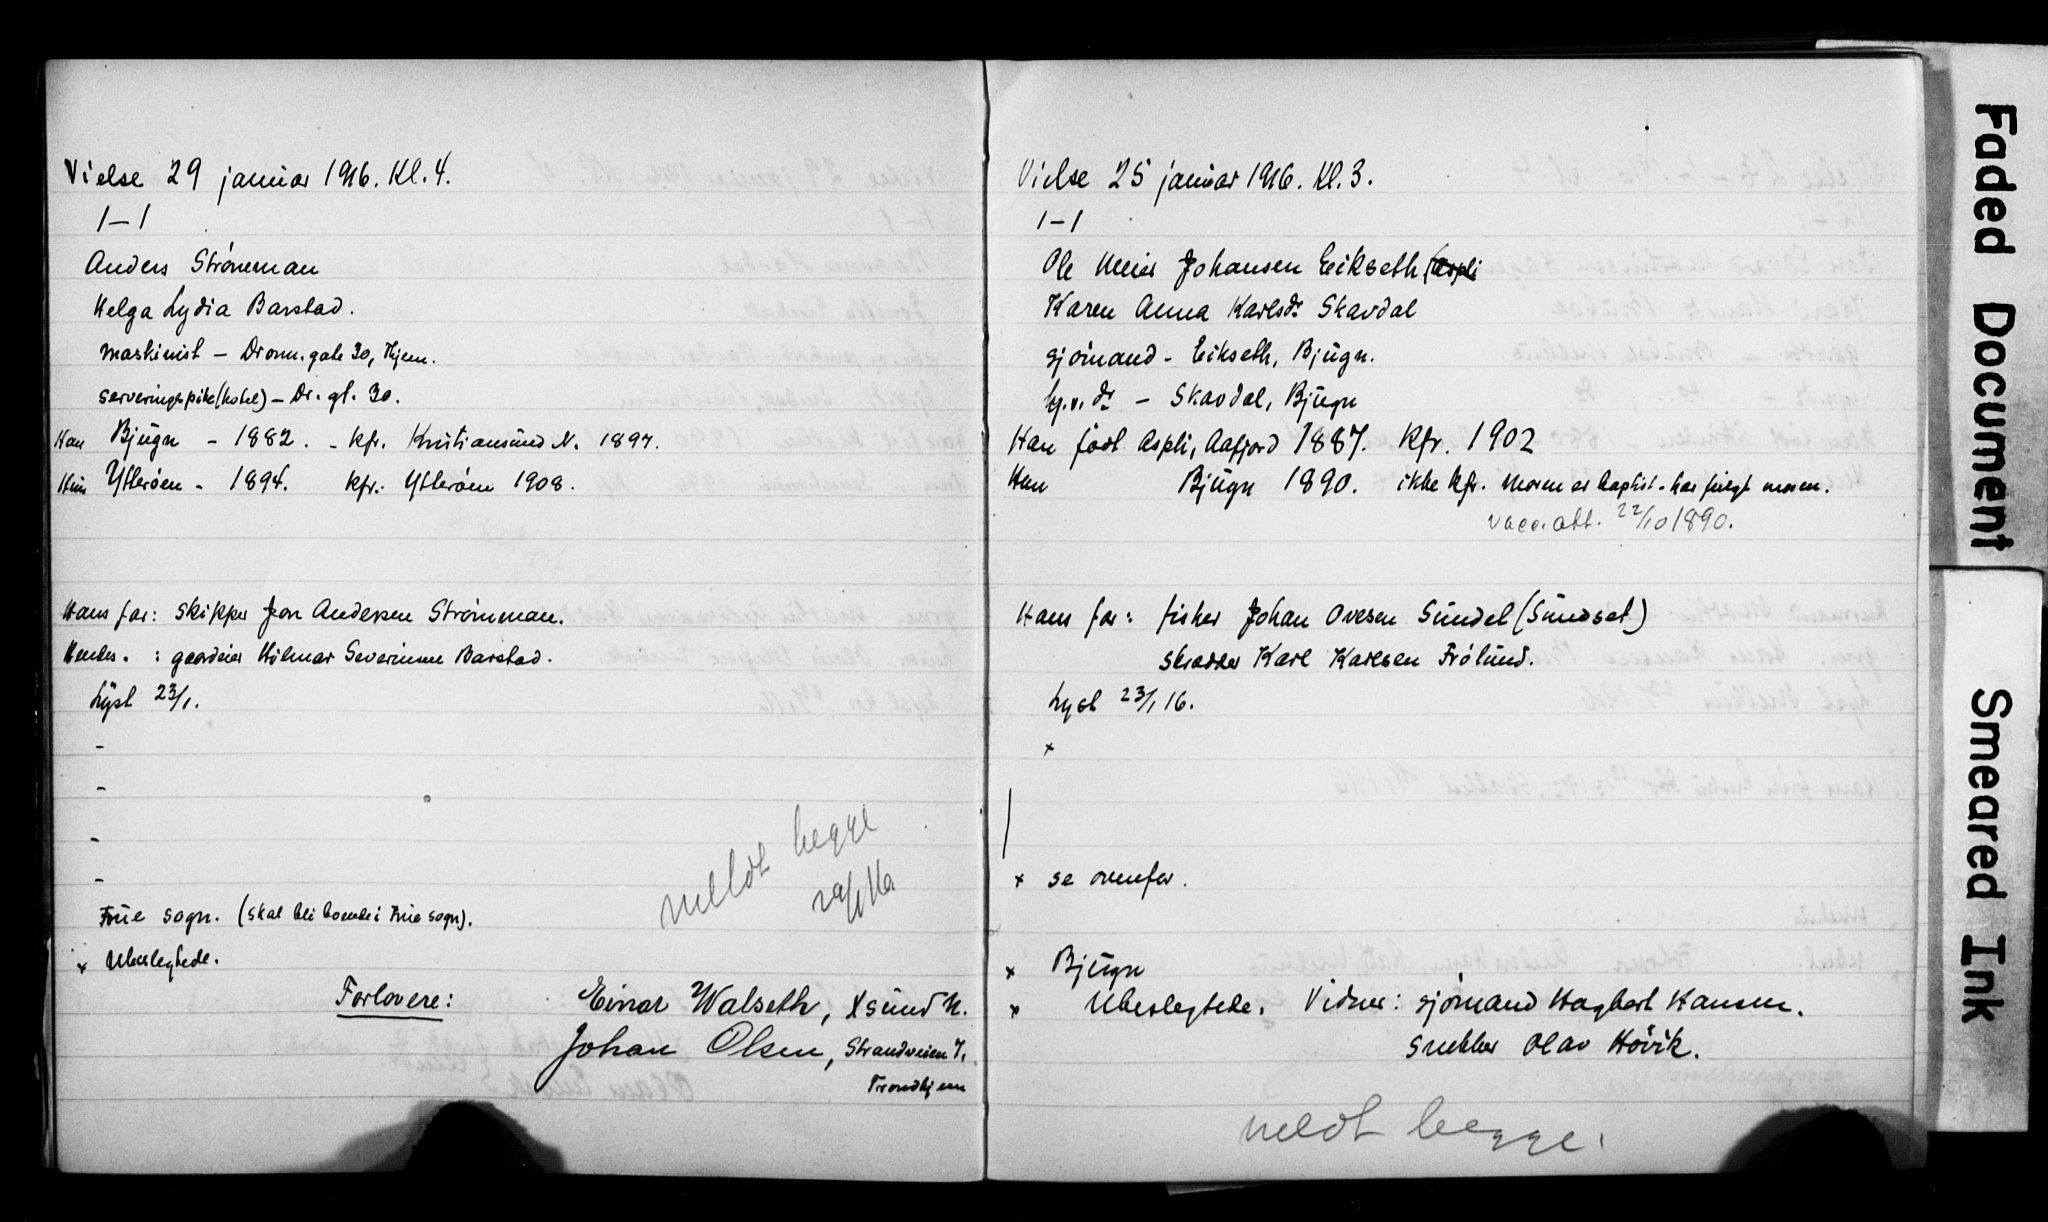 Vielse 29 januar 1916. Kl. 4.
1–1
Anders Strømman
Helga Lydia Barstad.
maskinist – Dronn. gate 30, Thjem.
serveringspike (hotel) – Dr. gt. 30.
Han Bjugn – 1882. – kfr. Kristiansund N. 1897.
Hun Ytterøen – 1894. kfr.: Ytterøen 1908.
Hans far: skipper Jon Andersen Strømman.
Hendes. : gaardeier Hilmar Severinsen Barstad.
Lyst 23/1.
–
–
–
–
Frue sogn. (skal bli boende i Frue sogn).
x Ubeslegtede.
meldt begge
Forlovere: Einar Walseth, Xsund N.
Johan Olsen, Strandveien 7,
Trondhjem
Vielse 25 januar 1916. Kl. 3.
1–1
Ole Meier Johansen Eikseth (Aspli
Karen Anna Karlsdr Skavdal
sjømand – Eikseth, Bjugn.
hj.v. dr – Skavdal, Bjugn
Han født Aspli, Aafjord 1887. Kfr. 1902
Hun Bjugn 1890. ikke kfr. Moren er baptist – har fulgt moren.
vacc. att. 22/10 1890.
Hans far: fisker Johan Ovesen Sundet (Sundset)
skrædder Karl Karlsen Frølund.
Lyst 23/1 16.
x
x se ovenfor.
x Bjugn
x Ubeslegtede. Vidner: sjømand Hagbart Hansen.
snekker Olav Høvik.
meldt begge.
Faded Document
Smeared Ink